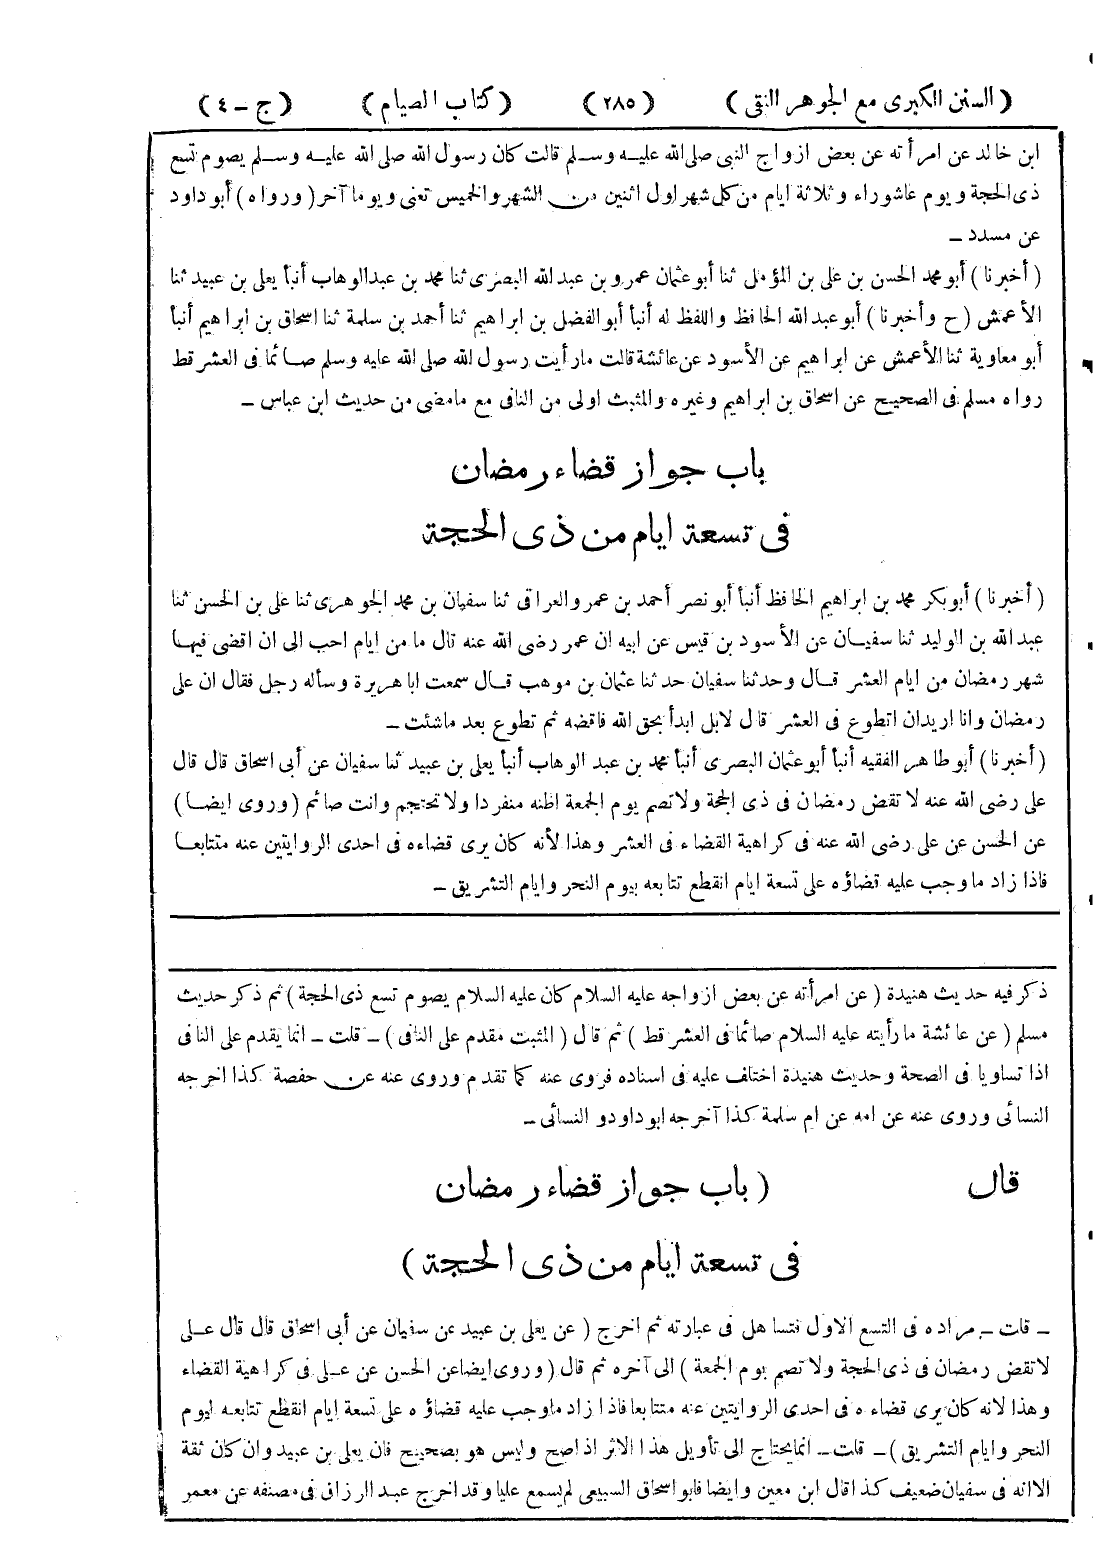 ( السنن الكبرى مع الجوهر النقى ) ( ٢٨٥ ) ( كتاب الصيام ) ( ج ـ ٤ )
ابن خالد عن امرأته عن بعض ازواج النبى صلى الله عليه وسلم قالت كان رسول الله صلى الله عليه وسلم يصوم تسع
ذى الحجة ويوم عاشوراء وثلاثة ايام من كل شهر اول اثنين من الشهر والخميس تعنى ويوما آخر ( ورواه ) أبو داود
عن مسدد ـ
( أخبرنا ) أبو محمد الحسن بن على بن المؤمل ثنا أبو عثمان عمرو بن عبد الله البصرى ثنا محمد بن عبد الوهاب أنبأ يعلى بن عبيد ثنا
الأعمش ( ح وأخبرنا ) أبو عبد الله الحافظ واللفظ له أنبأ أبو الفضل بن ابراهيم ثنا أحمد بن سلمة ثنا اسحاق بن ابراهيم أنبأ
أبو معاوية ثنا الأعمش عن ابراهيم عن الأسود عن عائشة قالت ما رأيت رسول الله صلى الله عليه وسلم صائما فى العشر قط
رواه مسلم فى الصحيح عن اسحاق بن ابراهيم وغيره والمثبت اولى من النافى مع ما مضى من حديث ابن عباس ـ
باب جواز قضاء رمضان
فى تسعة ايام من ذى الحجة
( أخبرنا ) أبو بكر محمد بن ابراهيم الحافظ أنبأ أبو نصر أحمد بن عمرو العراقى ثنا سفيان بن محمد الجوهرى ثنا على بن الحسن ثنا
عبد الله بن الوليد ثنا سفيان عن الأسود بن قيس عن ابيه ان عمر رضى الله عنه قال ما من ايام احب الى ان اقضى فيها
شهر رمضان من ايام العشر قال وحدثنا سفيان حدثنا عثمان بن موهب قال سمعت ابا هريرة وسأله رجل فقال ان على
رمضان وانا اريد ان اتطوع فى العشر قال لا بل ابدأ بحق الله فاقضه ثم تطوع بعد ما شئت ـ
( أخبرنا ) أبو طاهر الفقيه أنبأ أبو عثمان البصرى أنبأ محمد بن عبد الوهاب أنبأ يعلى بن عبيد ثنا سفيان عن أبى اسحاق قال قال
على رضى الله عنه لا تقض رمضان فى ذى الحجة ولا تصم يوم الجمعة اظنه منفردا ولا تحتجم وانت صائم ( وروى ايضا )
عن الحسن عن على رضى الله عنه فى كراهية القضاء فى العشر وهذا لأنه كان يرى قضاءه فى احدى الروايتين عنه متتابعا
فاذا زاد ما وجب عليه قضاؤه على تسعة ايام انقطع تتابعه بيوم النحر وايام التشريق ـ
ذكر فيه حديث هنيدة ( عن امرأته عن بعض ازواجه عليه السلام كان عليه السلام يصوم تسع ذى الحجة ) ثم ذكر حديث
مسلم ( عن عائشة ما رأيته عليه السلام صائما فى العشر قط ) ثم قال ( المثبت مقدم على النافى ) ـ قلت ـ انما يقدم على النافى
اذا تساويا فى الصحة وحديث هنيدة اختلف عليه فى اسناده فروى عنه كما تقدم وروى عنه عن حفصة كذا اخرجه
النسائى وروى عنه عن امه عن ام سلمة كذا آخرجه ابو داود و النسائى ـ
قال ( باب جواز قضاء رمضان
فى تسعة ايام من ذى الحجة )
ـ قلت ـ مراده فى التسع الاول فتساهل فى عبارته ثم اخرج ( عن يعلى بن عبيد عن سفيان عن أبى اسحاق قال قال على
لا تقض رمضان فى ذى الحجة ولا تصم يوم الجمعة ) الى آخره ثم قال ( وروى ايضا عن الحسن عن على فى كراهية القضاء
وهذا لانه كان يرى قضاءه فى احدى الروايتين عنه متتابعا فاذا زاد ما وجب عليه قضاؤه على تسعة ايام انقطع تتابعه ليوم
النحر وايام التشريق ) ـ قلت ـ انما يحتاج الى تأويل هذا الاثر اذا صح وليس هو بصحيح فان يعلى بن عبيد وان كان ثقة
الا انه فى سفيان ضعيف كذا قال ابن معين وايضا فابو اسحاق السبيعى لم يسمع عليا وقد اخرج عبد الرزاق فى مصنفه عن معمر